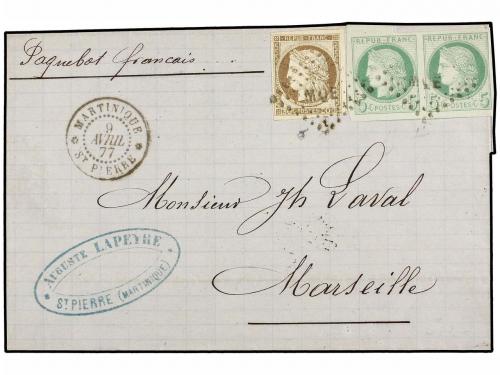 Paquebot francais
REPUB·FRANC·
REPUB·FRANC·
REPUB·FRANC·
POSTES
5 POSTES 5
MQE
MARTINIQUE
9
AVRIL
77
ST PIERRE
Monsieur Jh Laval
Marseille
AUGUSTE LAPEYRE
ST PIERRE (MARTINIQUE)